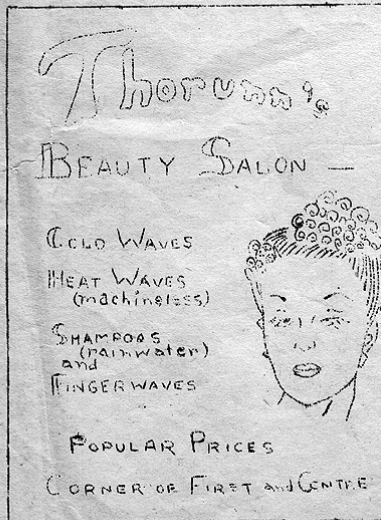 Thorunn's
BEAUTY SALON —
COLD WAVES
HEAT WAVES
(machineless)
SHAMPOOS
(rainwater)
and
FINGERWAVES
POPULAR PRICES
CORNER OF FIRST and CENTRE